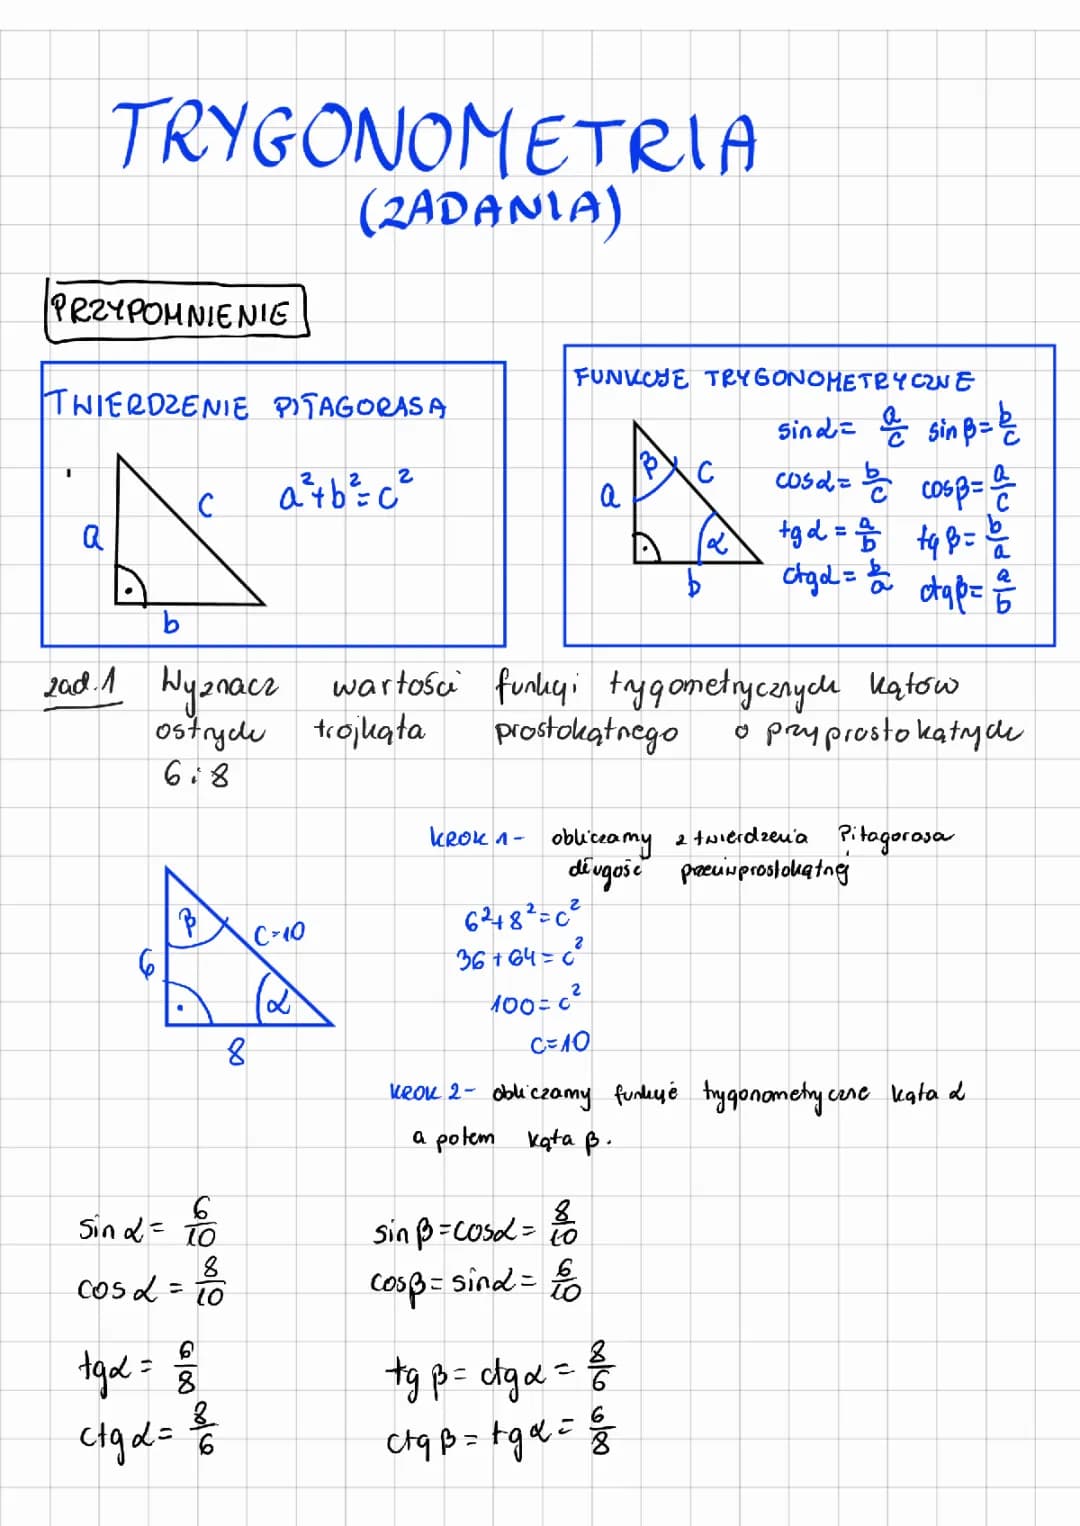 TRYGONOMETRIA
(ZADANIA)
PRZYPOMNIENIE
TWIERDZENIE PITAGORASA
a²+b²=c²
a
c
b
FUNKCJE TRYGONOMETRYCZNE
sinα= a/c sinβ= b/c
cosα= b/c cosβ= a/c
tgα= a/b tgβ= b/a
ctgα= b/a ctgβ= a/b
β
c
a
α
b
zad.1 Wyznacz wartości funkcji trygometrycznych kątów
ostrych trójkąta prostokątnego o przyprostokątnych
6 i 8
KROK 1- obliczamy z twierdzenia Pitagorasa
długość przeciwprostokątnej
6²+8²=c²
36+64=c²
100=c²
c=10
β
c=10
6
α
8
KROK 2- obliczamy funkcje trygonometryczne kąta α
a potem kąta β.
sin α= 6/10 sin β=cosα= 8/10
cos α= 8/10 cosβ= sinα= 6/10
tgα= 6/8 tg β= ctgα= 8/6
ctgα= 8/6 ctg β= tgα= 6/8